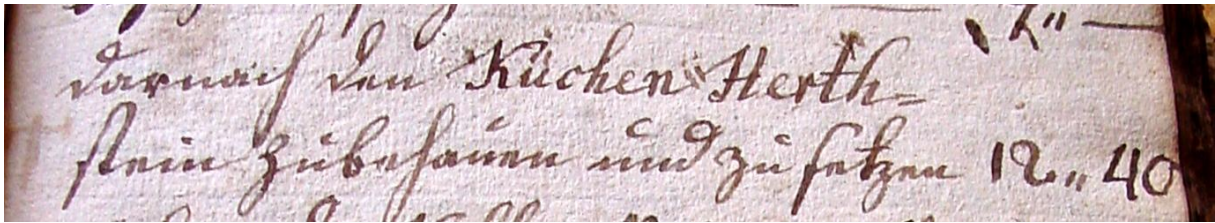 darnach den Küchen Herth-
stein zubehauen und zu setzen 12 „ 40